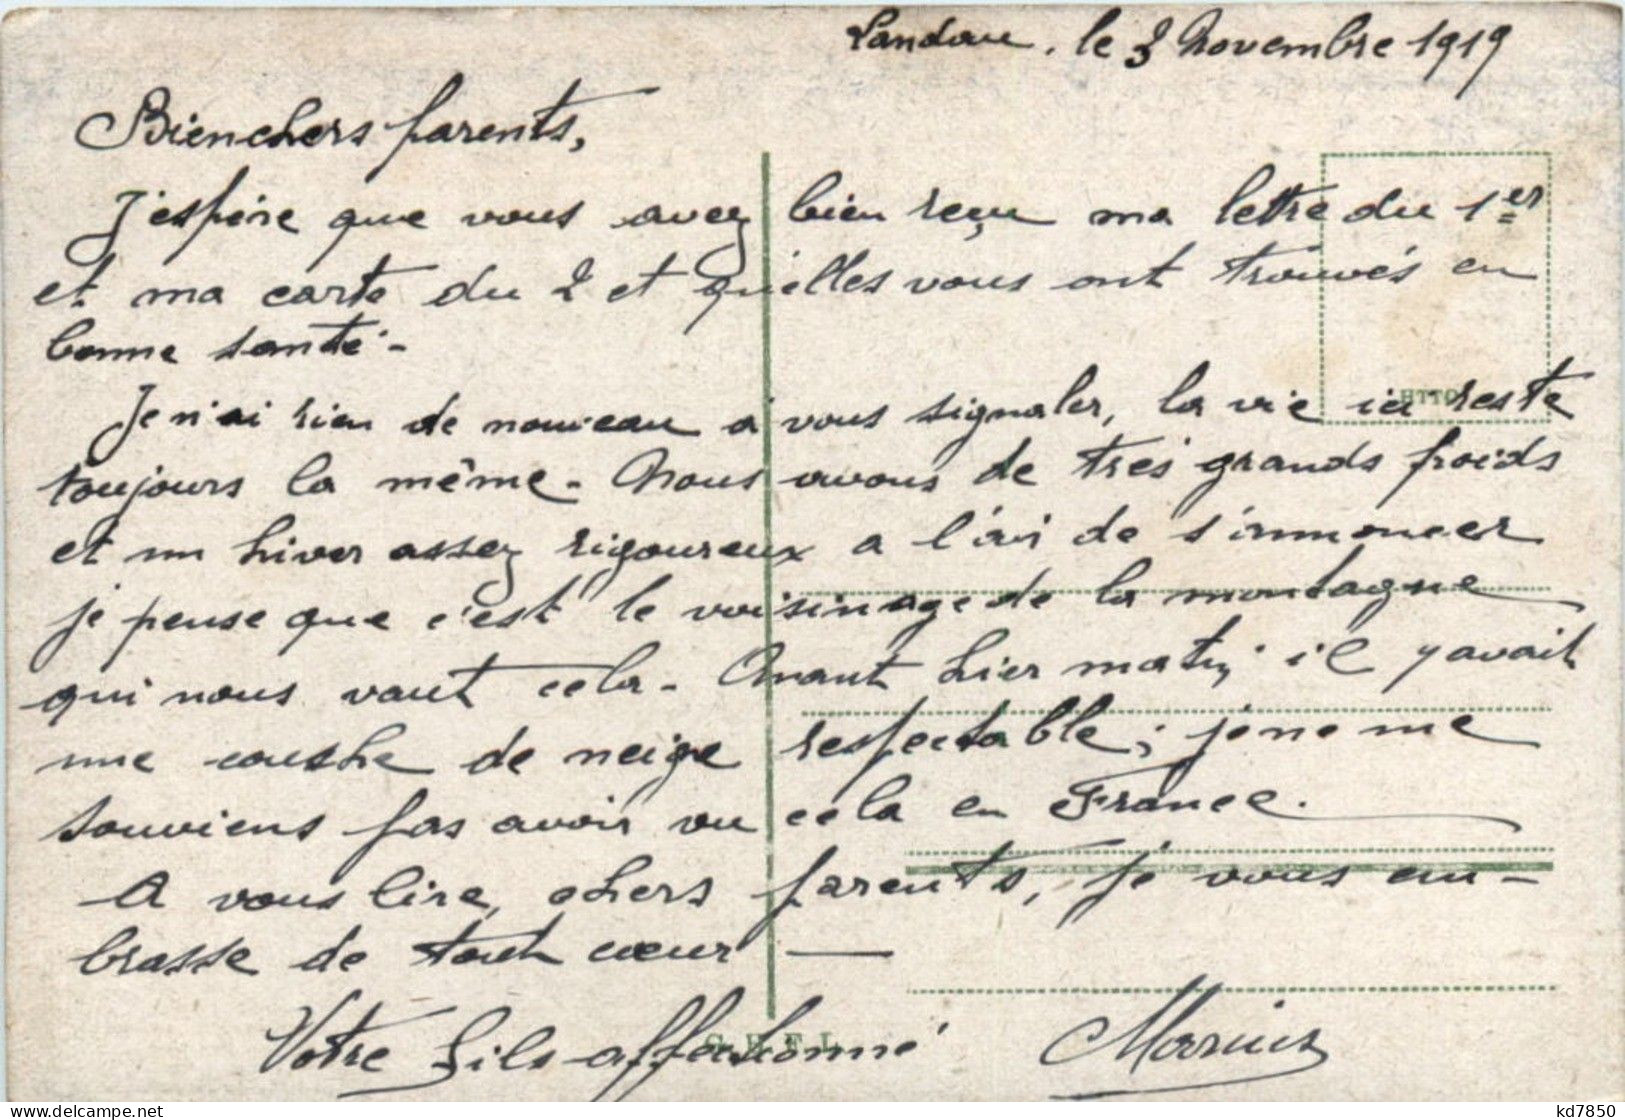 Landau, le 3 Novembre 1919
Bien chers parents,
J'espère que vous avez bien reçu ma lettre du 1er
et ma carte du 2 et qu'elles vous ont trouvés en
bonne santé -
Je n'ai rien de nouveau à vous signaler, la vie ici reste
toujours la même - Nous avons de très grands froids
et un hiver assez rigoureux a l'air de s'annoncer
je pense que c'est le voisinage de la montagne
qui nous vaut cela - Avant hier matin, il y avait
une couche de neige respectable ; je ne me
souviens pas avoir vu cela en France.
A vous lire, chers parents, je vous em-
brasse de tout cœur —
Votre fils affectionné Marius
delcampe.net
kd7850